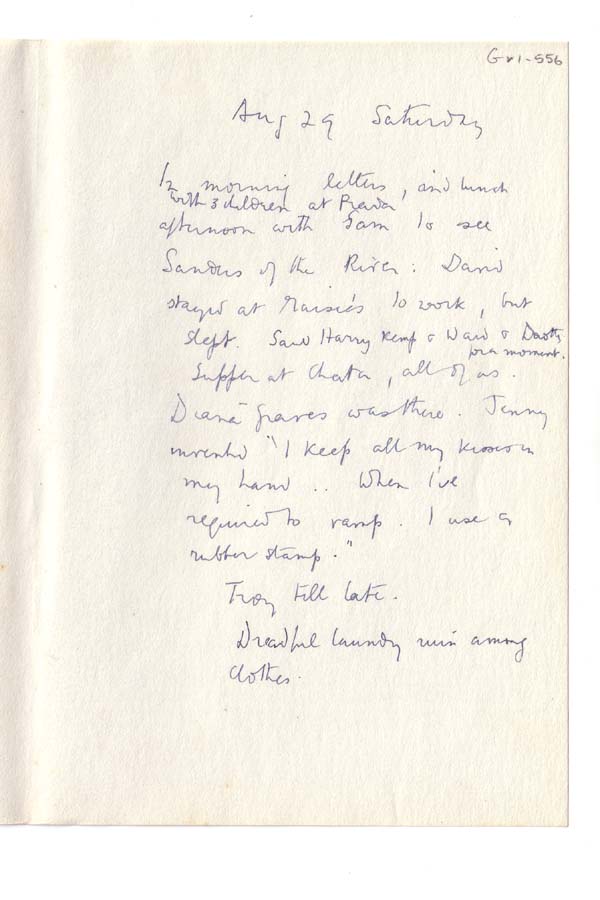 Gr1-556
Aug 29 Saturday
In morning letters, and lunch
with 3 children at Prada,
afternoon with Sam to see
Sanders of the River: David
stayed at Maisie's to work, but
slept. Saw Harry Kemp & Ward &
for a moment.
Supper at Chata, all of us.
Diana Graves was there. Jenny
invented "I keep all my kisses in
my hand .. When I've
required to vamp. I use a
rubber stamp."
Troy till late.
Dreadful laundry ruin among
clothes.